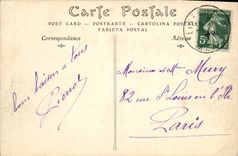 Carte Postale
POST CARD - POSTKARTE - CARTOLINA POSTALE
TARJETA POSTAL
Correspondance
Adresse
bons baisers à tous
Pierrot
Monsieur et Mme Mury
82 rue St Louis en l'Ile
Paris